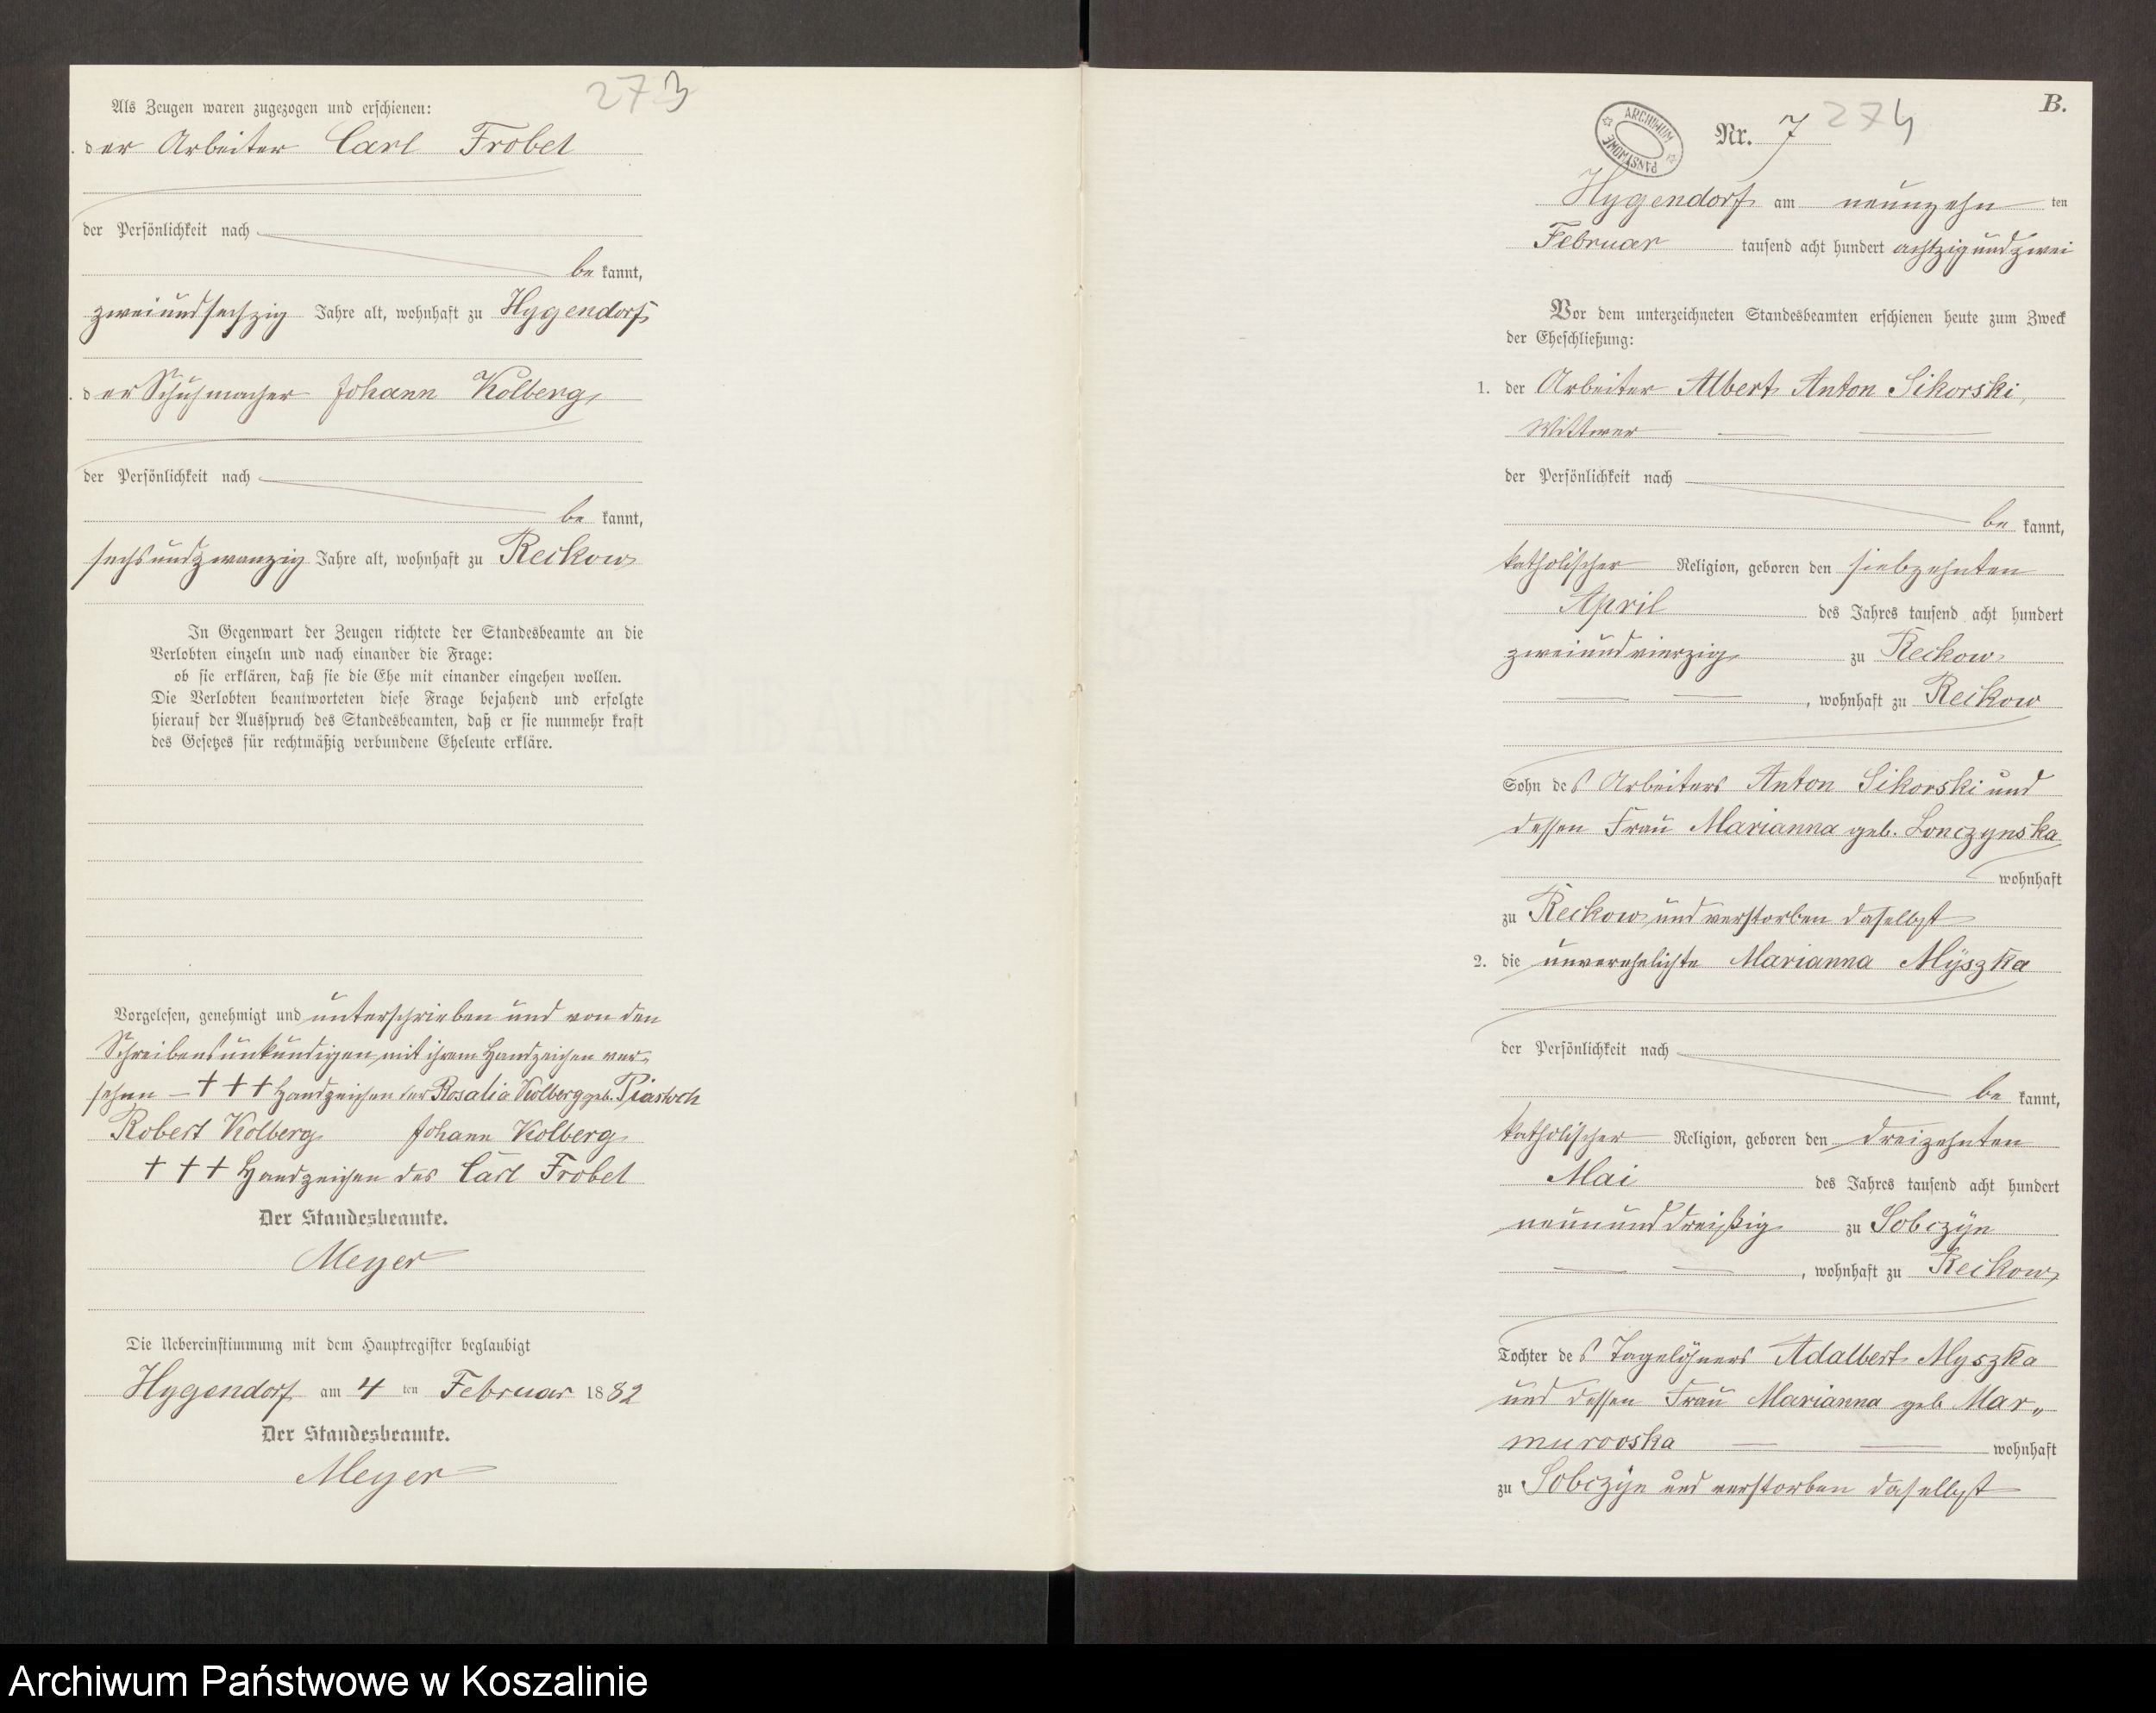 273
Als Zeugen waren zugezogen und erschienen:
der Arbeiter Carl Frobel
der Persönlichkeit nach
be kannt,
zweiundsechzig Jahre alt, wohnhaft zu Hygendorf
der Schuhmacher Johann Kolberg,
der Persönlichkeit nach
be kannt,
sechsundzwanzig Jahre alt, wohnhaft zu Reckow
In Gegenwart der Zeugen richtete der Standesbeamte an die
Verlobten einzeln und nach einander die Frage:
ob sie erklären, daß sie die Ehe mit einander eingehen wollen.
Die Verlobten beantworteten diese Frage bejahend und erfolgte
hierauf der Ausspruch des Standesbeamten, daß er sie nunmehr kraft
des Gesetzes für rechtmäßig verbundene Eheleute erkläre.
Vorgelesen, genehmigt und unterschrieben und von den
Schreibensunkundigen mit ihrem Handzeichen ver-
sehen – + + + Handzeichen der Rosalia Kolberg geb.
Robert Kolberg Johann Kolberg
+ + + Handzeichen des Carl Frobel
Der Standesbeamte.
Meyer
Die Uebereinstimmung mit dem Hauptregister beglaubigt
Hygendorf am 4 ten Februar 1882
Der Standesbeamte.
Meyer
B.
ARCHIWUM PAŃSTWOWE
Nr. 7 274
Hygendorf am neunzehn ten
Februar tausend acht hundert achtzig und zwei
Vor dem unterzeichneten Standesbeamten erschienen heute zum Zweck
der Eheschließung:
1. der Arbeiter Albert Anton Sikorski,
Wittwer
der Persönlichkeit nach
be kannt,
katholischer Religion, geboren den siebzehnten
April des Jahres tausend acht hundert
zweiundvierzig zu Reckow
, wohnhaft zu Reckow
Sohn des Arbeiters Anton Sikorski und
dessen Frau Marianna geb. Lonczynska
wohnhaft
zu Reckow und verstorben daselbst
2. die unverehelichte Marianna Myszka
der Persönlichkeit nach
be kannt,
katholischer Religion, geboren den dreizehnten
Mai des Jahres tausend acht hundert
neununddreißig zu Sobczyn
, wohnhaft zu Reckow
Tochter des Tagelöhners Adalbert Myszka
und dessen Frau Marianna geb Mar„
murowska wohnhaft
zu Sobczyn und verstorben daselbst
Archiwum Państwowe w Koszalinie